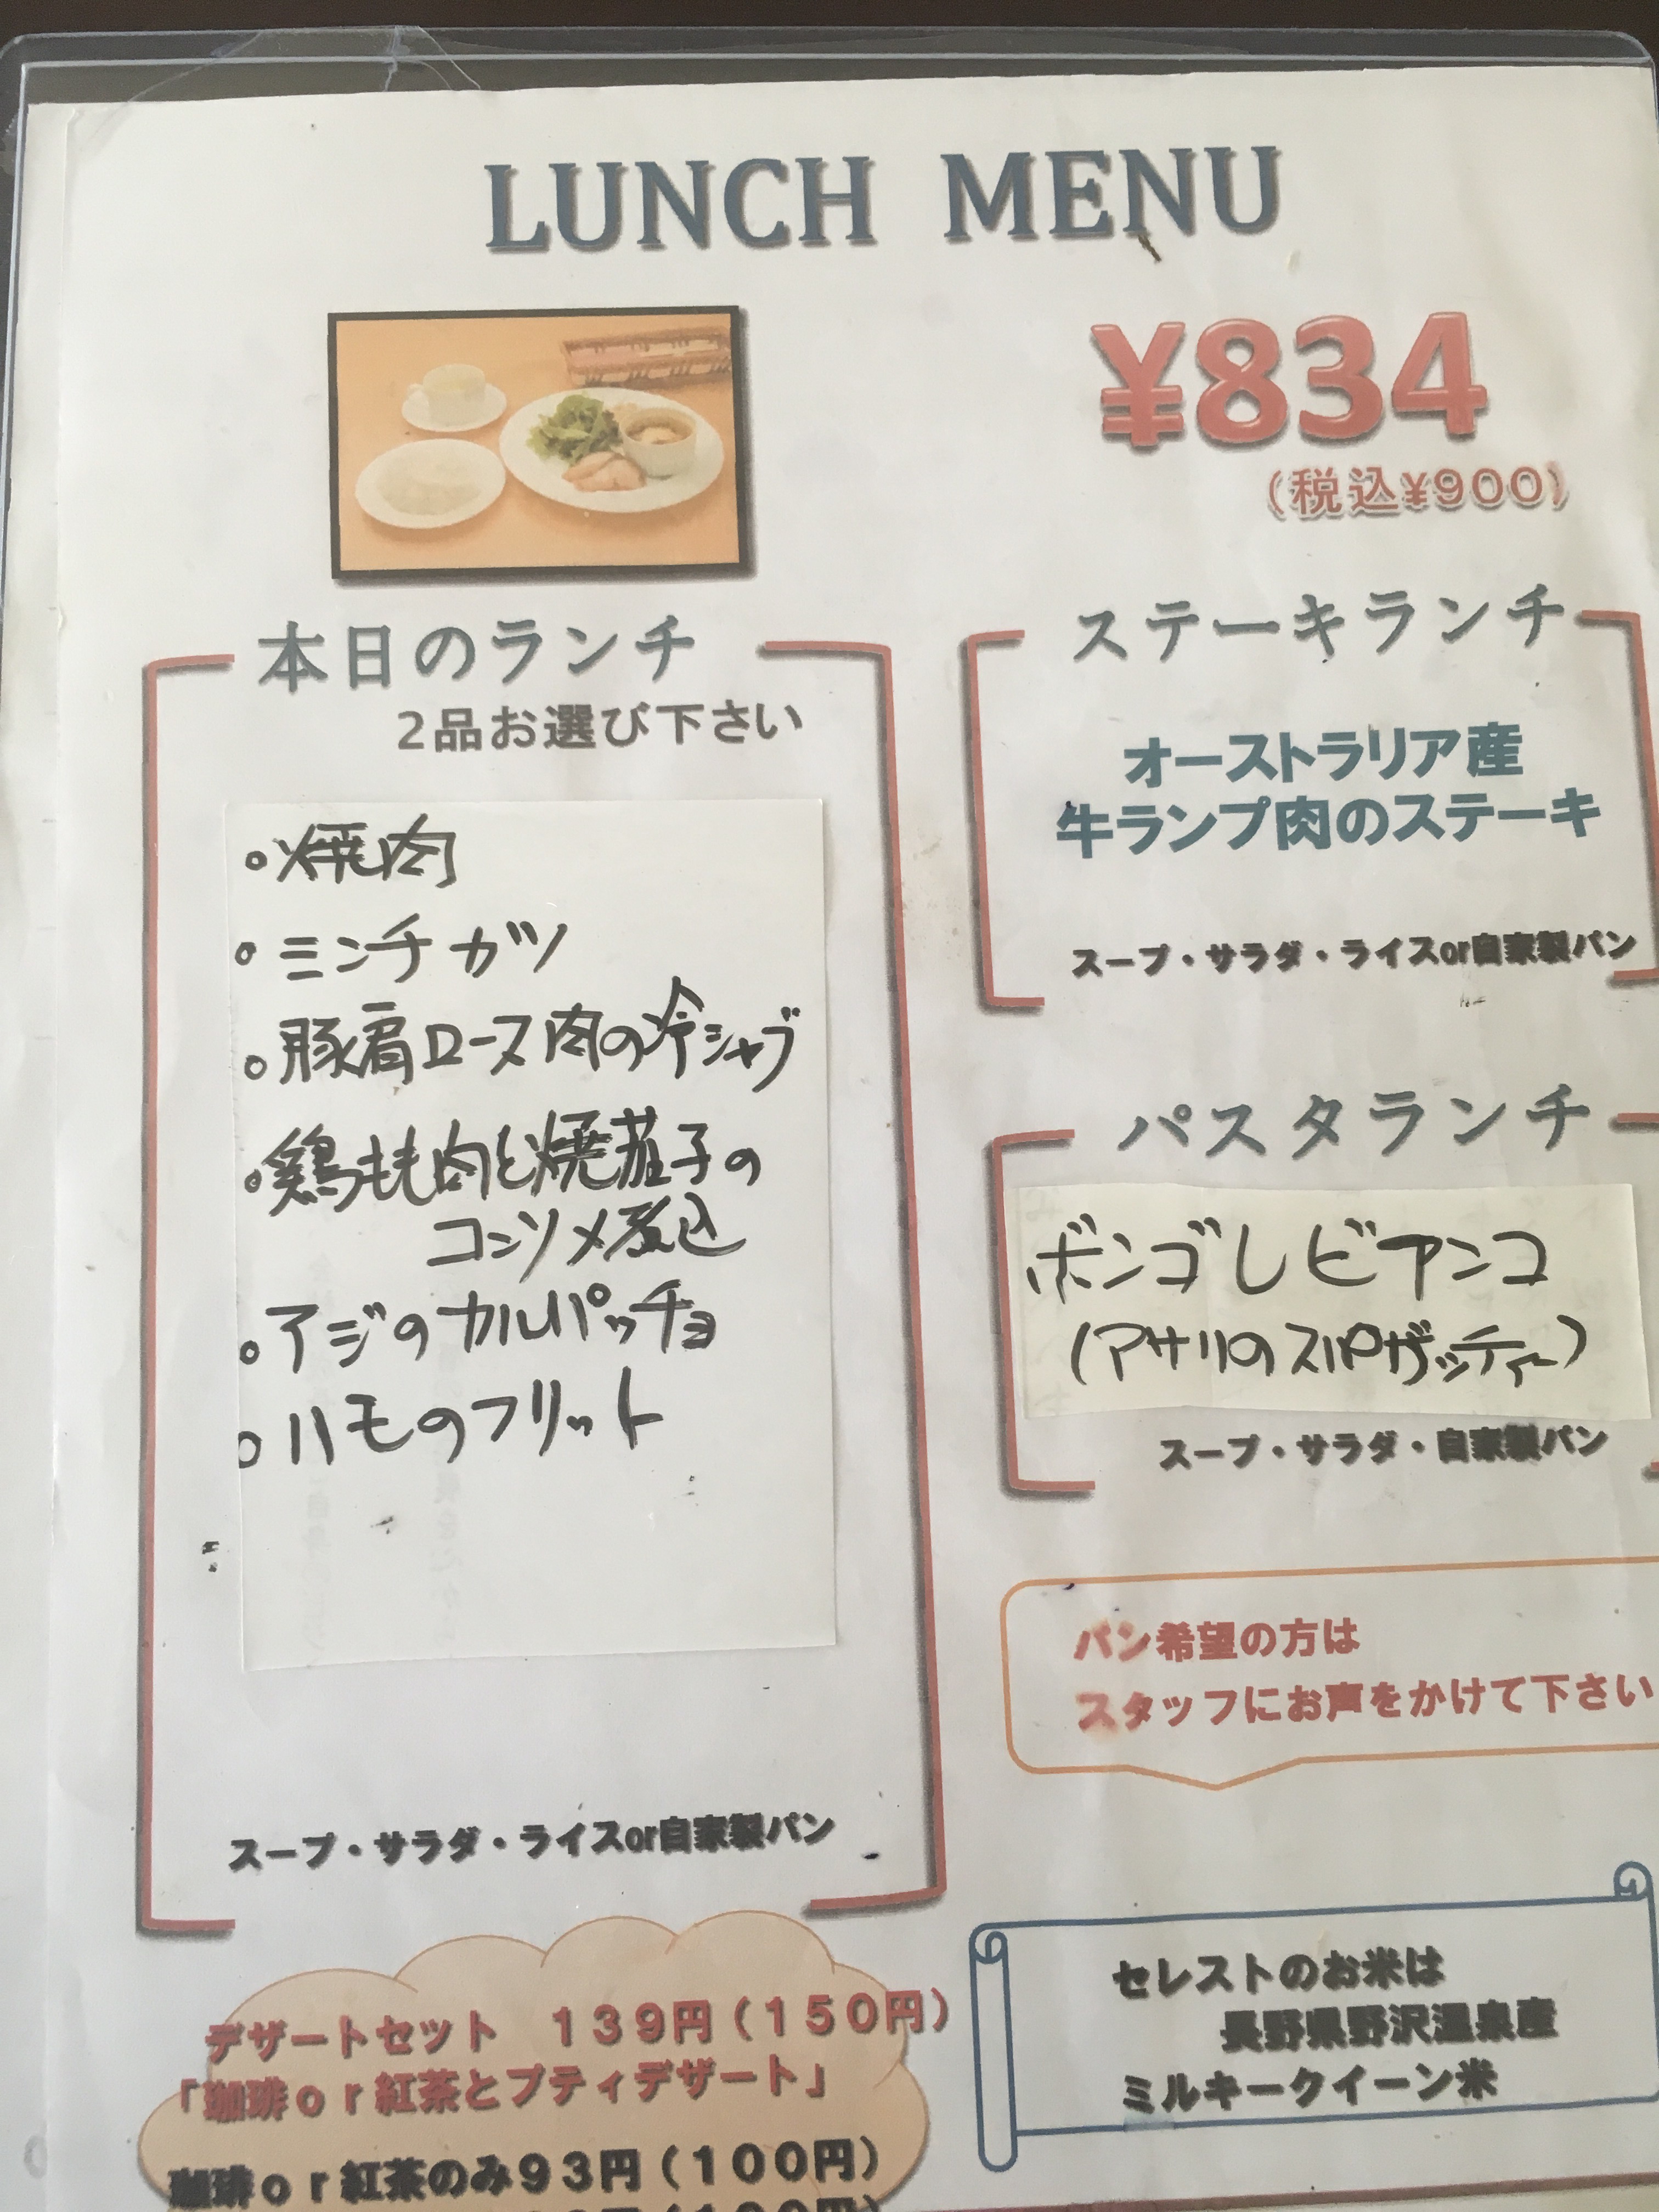 LUNCH MENU
¥834
(税込¥900)
本日のランチ
2品お選び下さい
。焼肉
。ミンチカツ
。豚肩ロース肉の冷シャブ
。鶏もも肉と焼茄子の
コンソメ煮込
。アジのカルパッチョ
。ハモのフリット
スープ・サラダ・ライスor自家製パン
ステーキランチ
オーストラリア産
牛ランプ肉のステーキ
スープ・サラダ・ライスor自家製パン
パスタランチ
ボンゴレビアンコ
(アサリのスパゲッティー)
スープ・サラダ・自家製パン
パン希望の方は
スタッフにお声をかけて下さい
デザートセット 139円(150円)
「珈琲or紅茶とプティデザート」
珈琲or紅茶のみ93円(100円)
セレストのお米は
長野県野沢温泉産
ミルキークイーン米